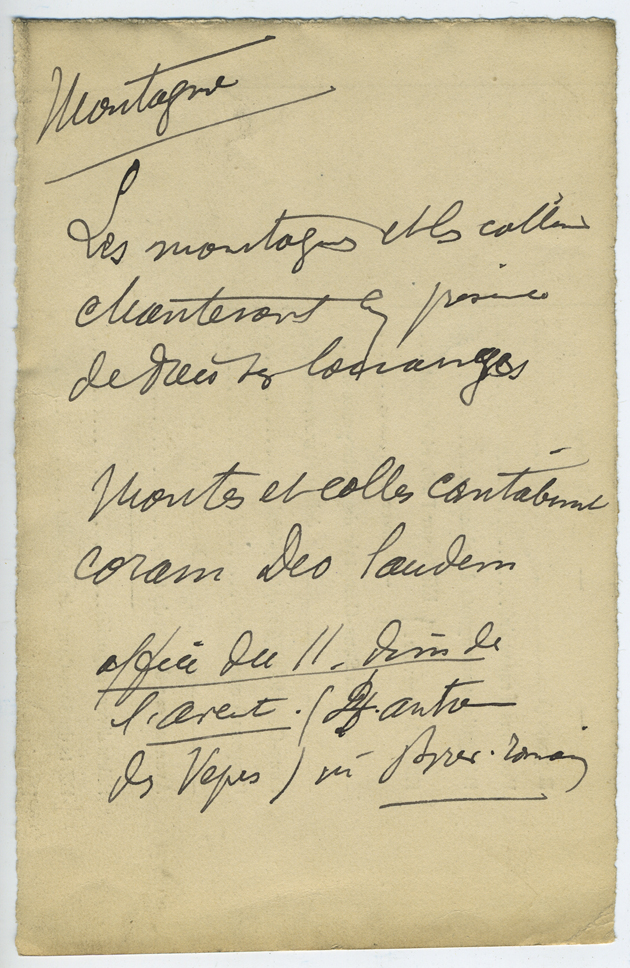 Montagne
Les montagnes et les collines
chanteront en présence
de Dieu ses louanges
Montes et colles cantabunt
coram Deo laudem
office du II. dim de
l'avent. ( antienne
des Vepres ) in Brev. romain